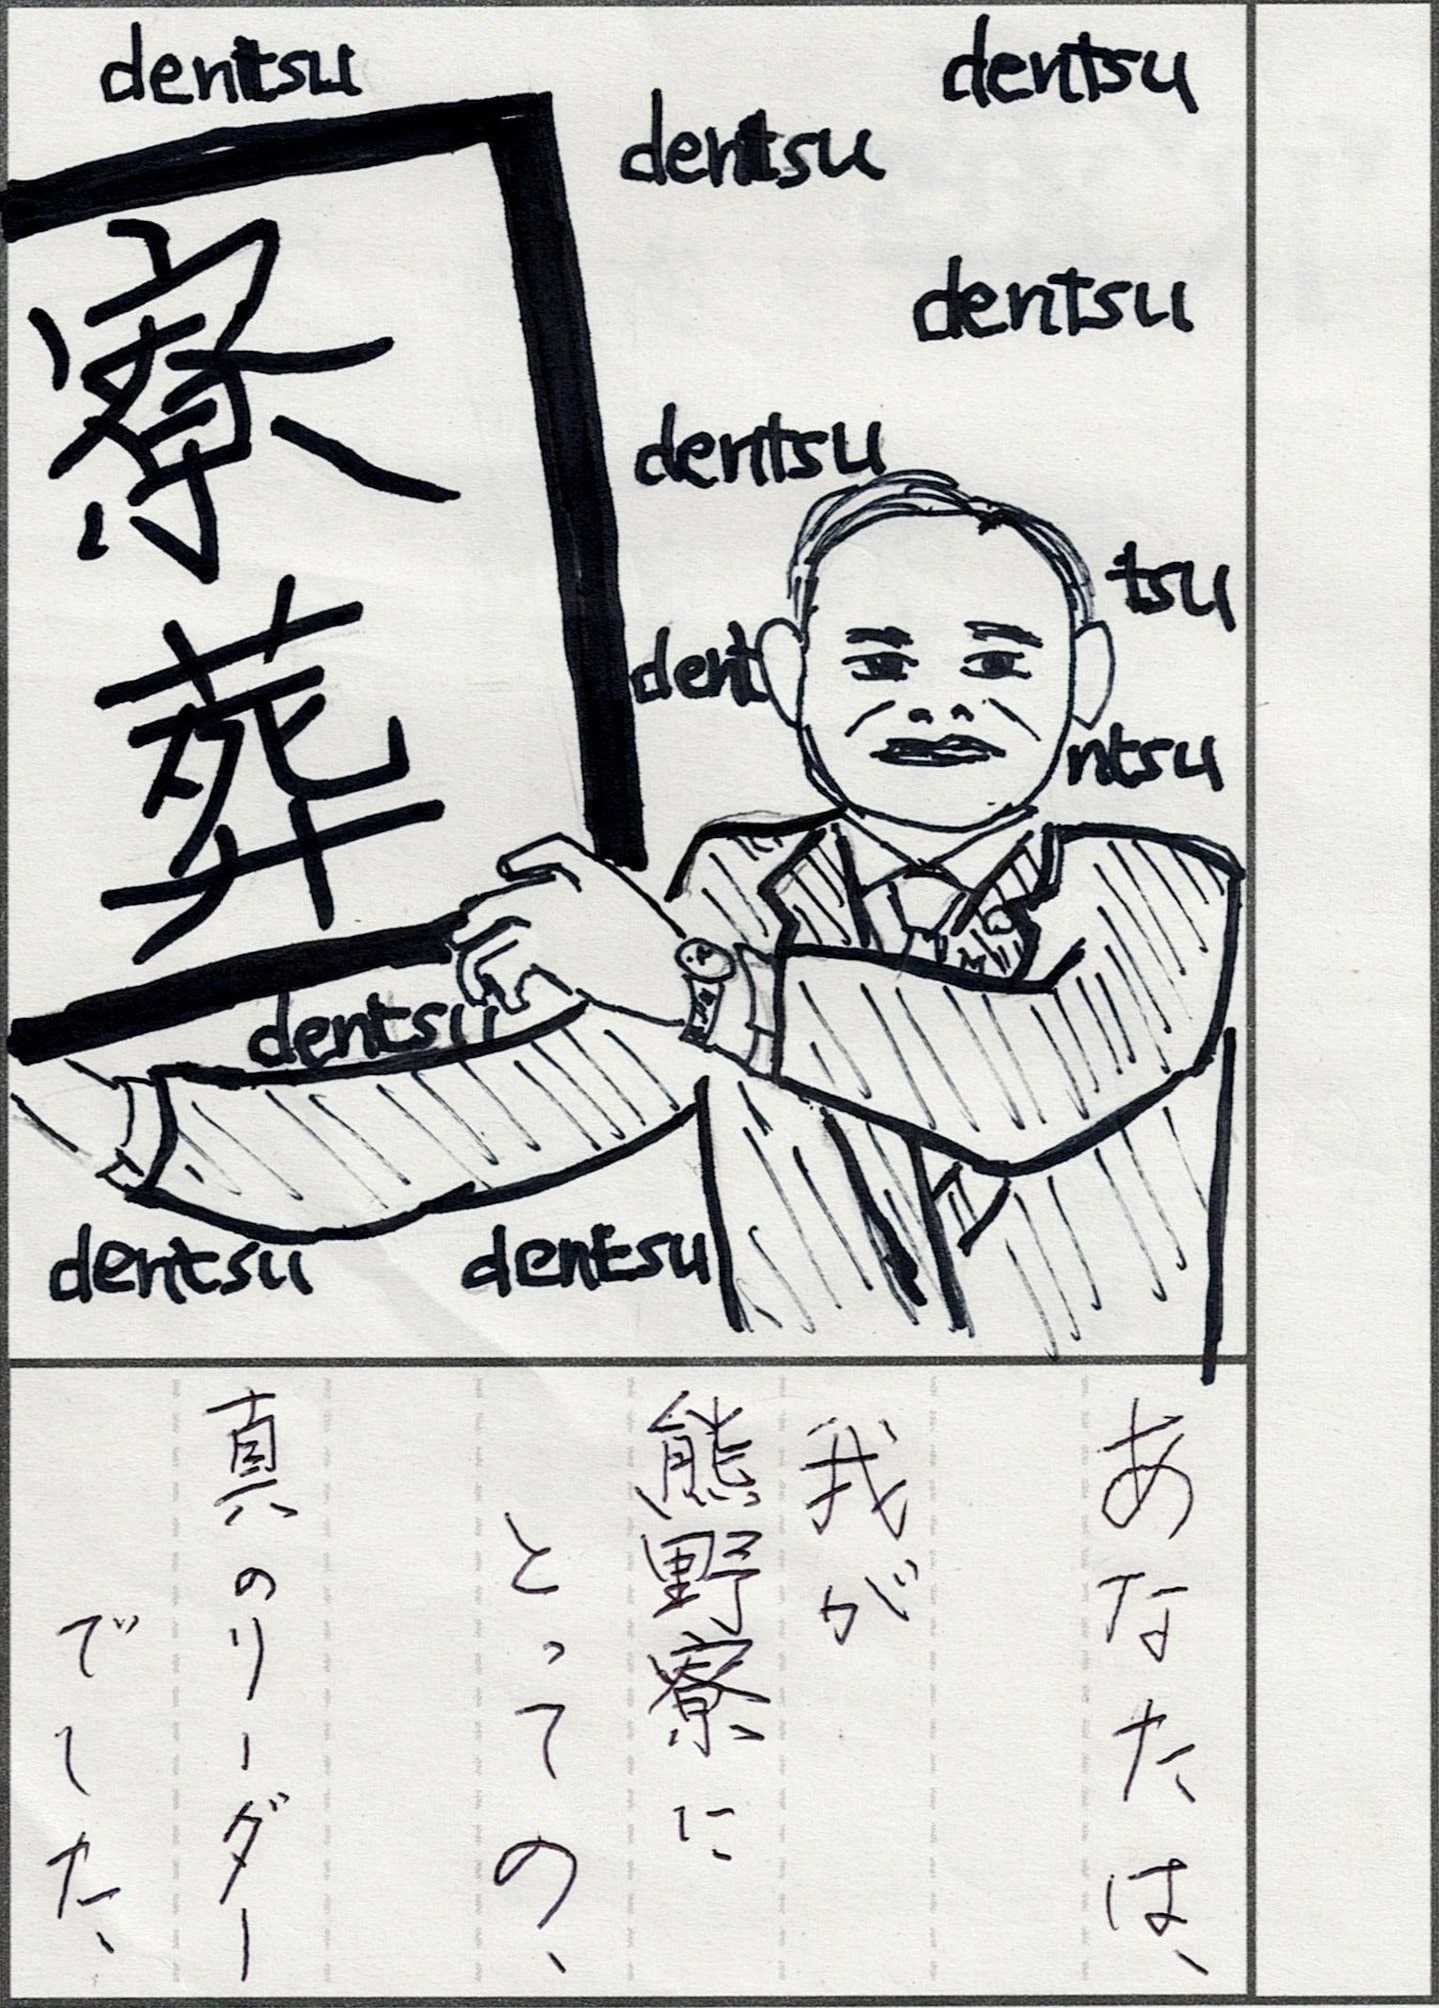 dentsu
dentsu
dentsu
dentsu
dentsu
tsu
dent
ntsu
寮葬
dentsu
dentsu
dentsu
あなたは、
我が
熊野寮に
とっての、
真のリーダー
でした、